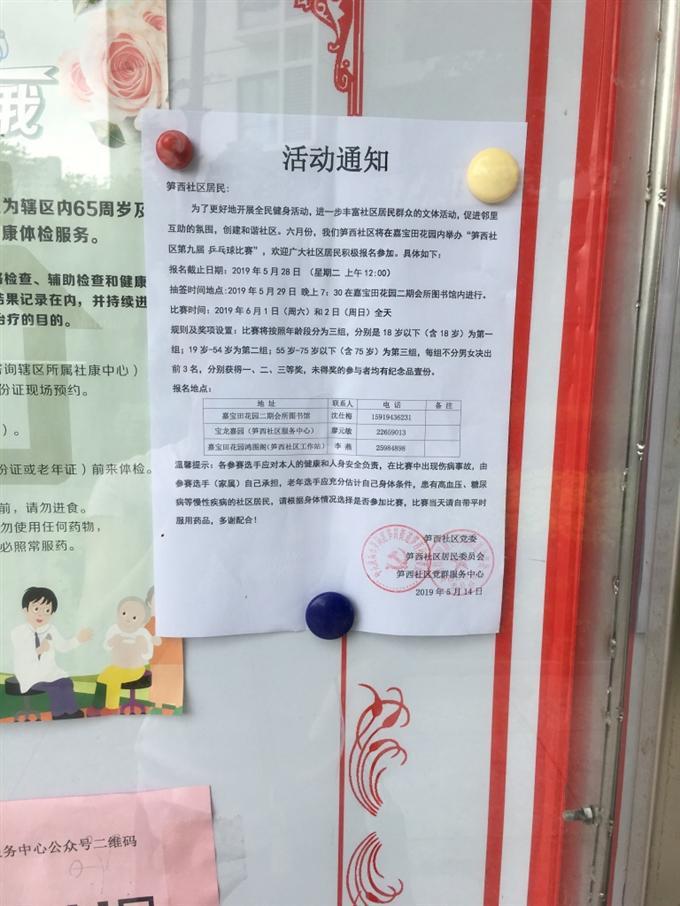 我
为辖区内65周岁及
康体检服务。
检查、辅助检查和健康
结果记录在内，并持续进
治疗的目的。
询辖区所属社康中心）
份证现场预约。
）。
份证或老年证）前来体检。
前，请勿进食。
勿使用任何药物，
必照常服药。
活动通知
笋西社区居民：
为了更好地开展全民健身活动，进一步丰富社区居民群众的文体活动，促进邻里
互助的氛围，创建和谐社区。六月份，我们笋西社区将在嘉宝田花园内举办“笋西社
区第九届 乒乓球比赛”，欢迎广大社区居民积极报名参加。具体如下：
报名截止日期：2019 年 5 月 28 日 （星期二 上午 12:00）
抽签时间地点:2019 年 5 月 29 日 晚上 7：30 在嘉宝田花园二期会所图书馆内进行。
比赛时间：2019 年 6 月 1 日（周六）和 2 日（周日）全天
规则及奖项设置：比赛将按照年龄段分为三组，分别是 18 岁以下（含 18 岁）为第一
组；19 岁-54 岁为第二组；55 岁-75 岁以下（含 75 岁）为第三组，每组不分男女决出
前 3 名，分别获得一、二、三等奖，未得奖的参与者均有纪念品壹份。
报名地点：
地 址 联系人 电 话 备 注
嘉宝田花园二期会所图书馆 沈仕梅 15919436231
宝龙嘉园（笋西社区服务中心） 廖元敏 22659013
嘉宝田花园鸿图阁(笋西社区工作站) 李 燕 25984898
温馨提示：各参赛选手应对本人的健康和人身安全负责，在比赛中出现伤病事故，由
参赛选手（家属）自己承担，老年选手应充分估计自己身体条件，患有高血压、糖尿
病等慢性疾病的社区居民，请根据身体情况选择是否参加比赛，比赛当天请自带平时
服用药品，多谢配合！
笋西社区党委
笋西社区居民委员会
笋西社区党群服务中心
2019 年 5 月 14 日
务中心公众号二维码